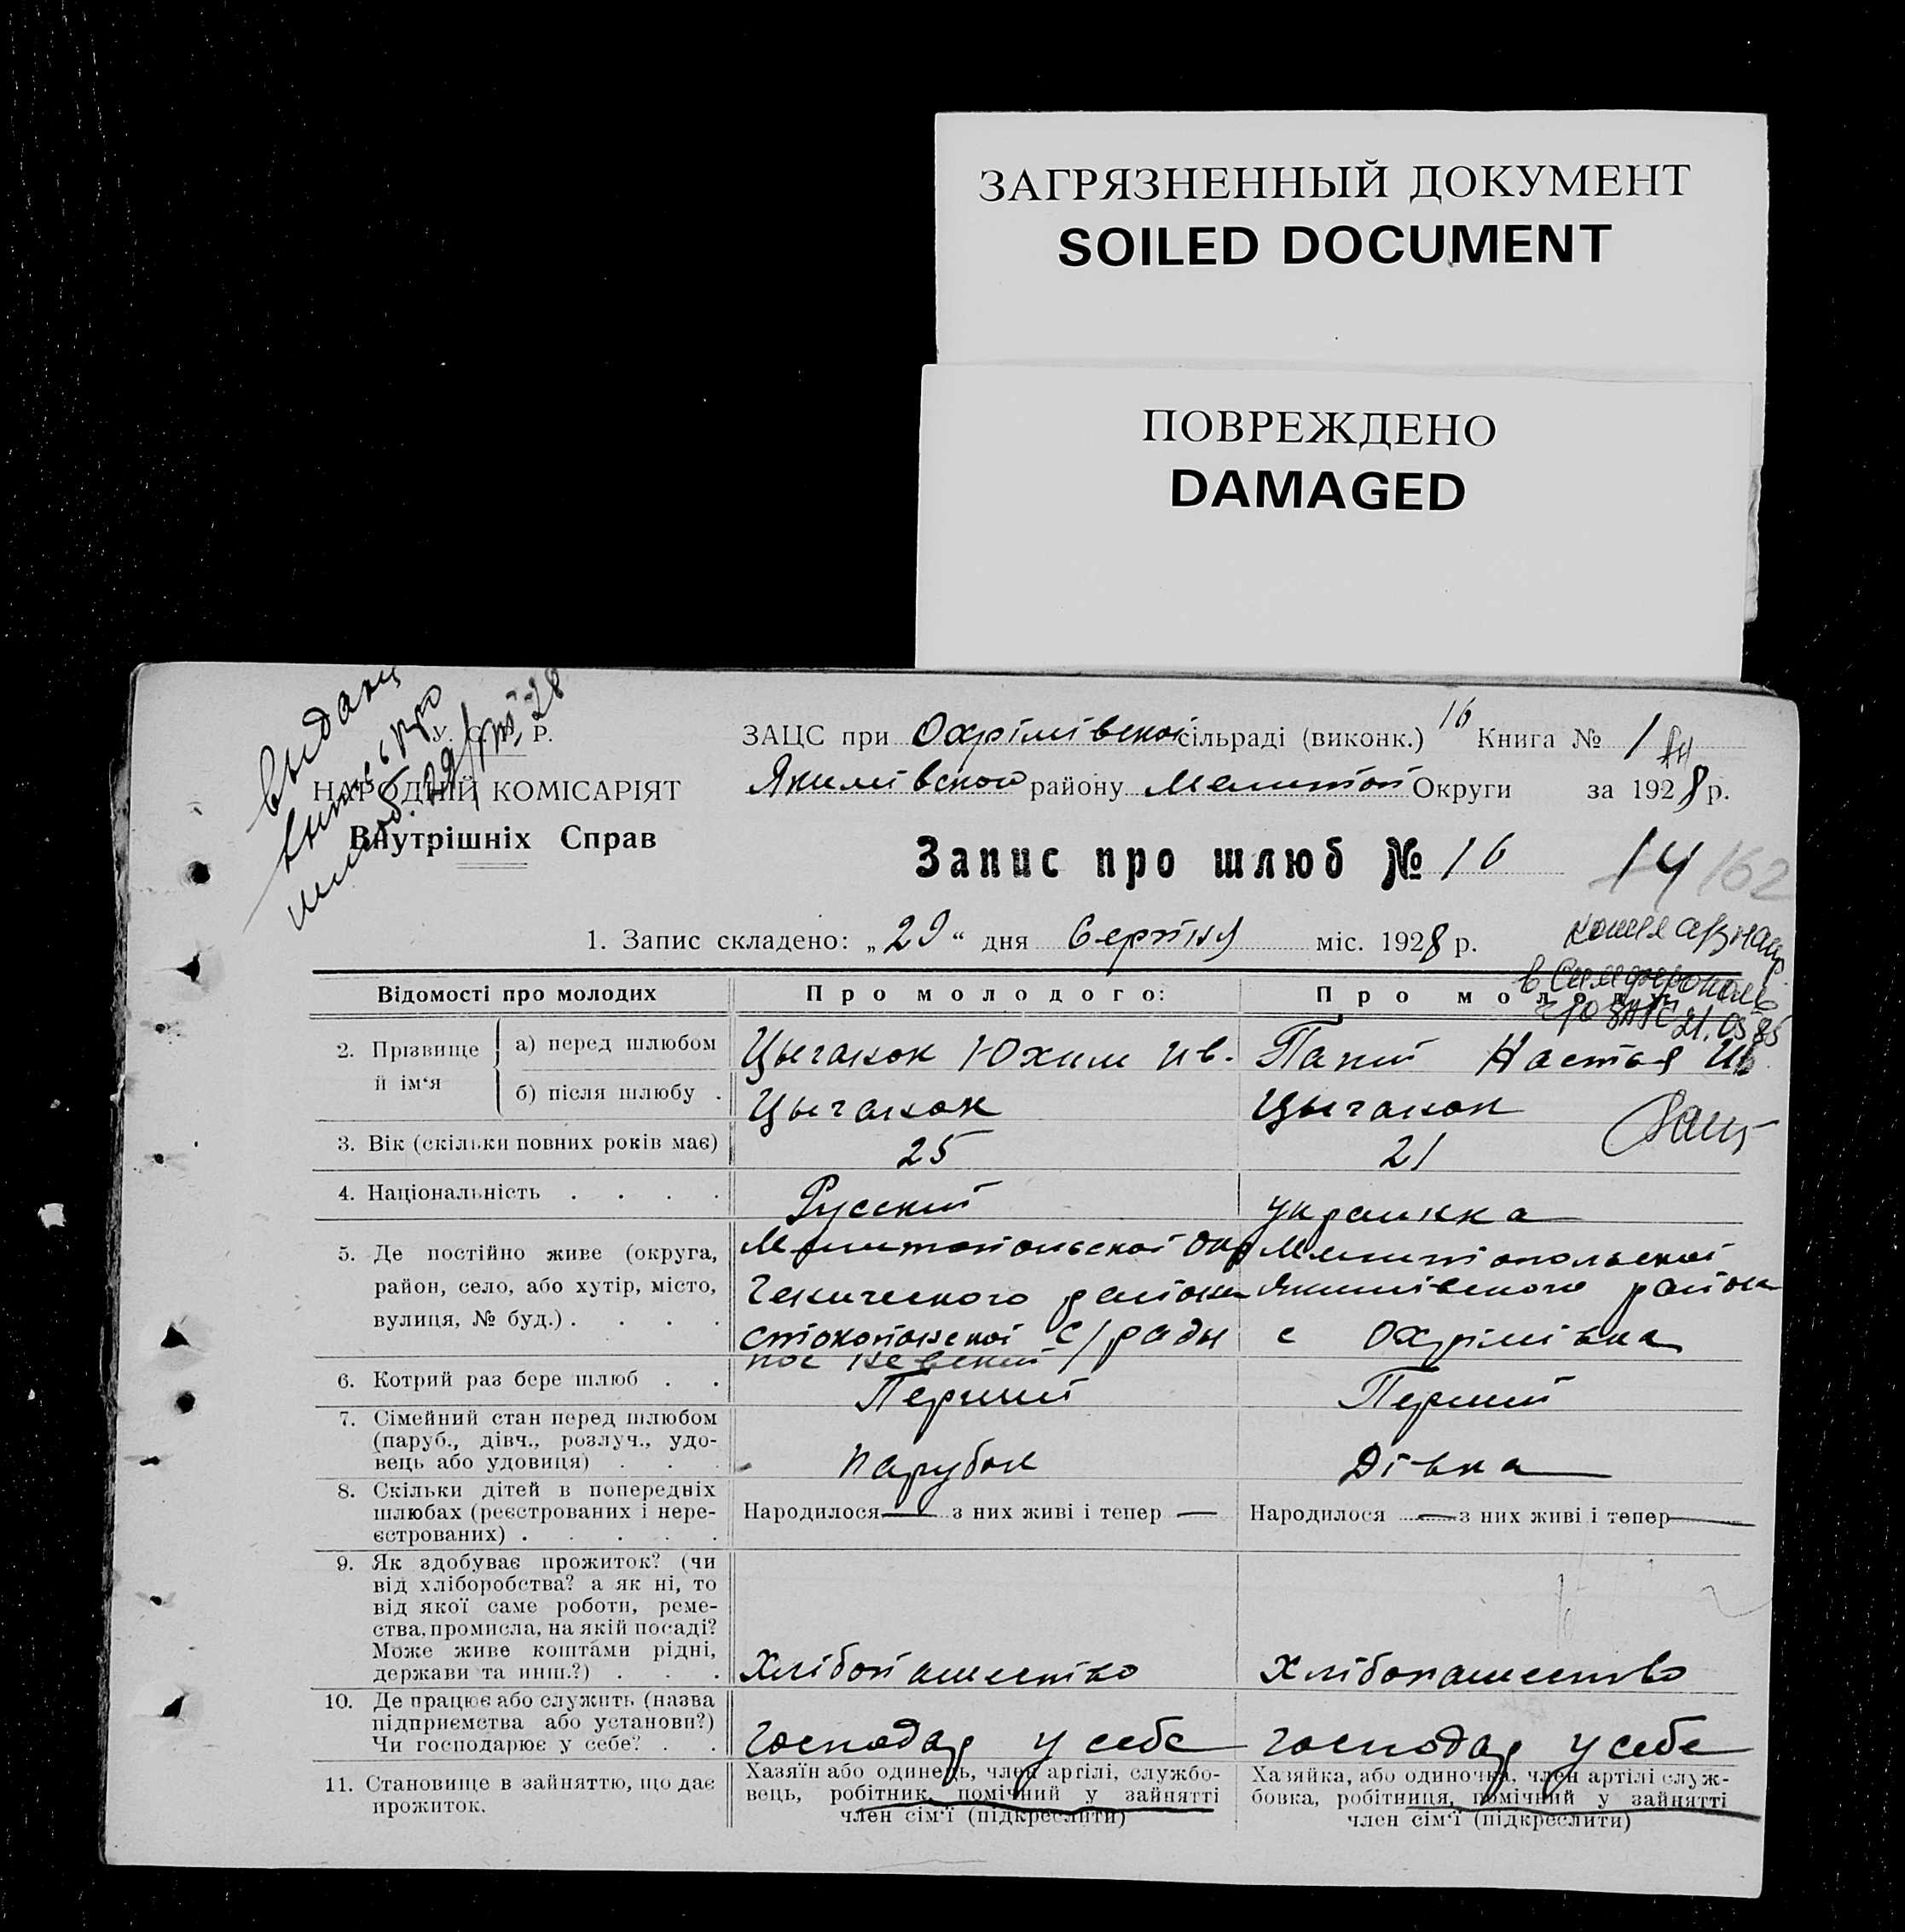 ЗАГРЯЗНЕННЫЙ ДОКУМЕНТ
SOILED DOCUMENT
ПОВРЕЖДЕНО
DAMAGED
У. С. Р. Р.
НАРОДНІЙ КОМІСАРІЯТ
Внутрішніх Справ
ЗАЦС при Охрімівскої сільраді (виконк.) 16 Книга № 1
Якимівскою району Мелитоп Округи за 1928 р.
Запис про шлюб № 16 14 162
1. Запис складено: „29“ дня Серпня міс. 1928 р.
в Симферополь
ЗАГС 21.05.85
Відомості про молодих
Про молодого:
Про молоду:
2. Прізвище й ім‘я
а) перед шлюбом
Цыганок Юхим Ив.
Папій Настья Ив
б) після шлюбу .
Цыганок
Цыганок
3. Вік (скільки повних років має)
25
21
4. Національність . . . .
Русский
украинка
5. Де постійно живе (округа,
район, село, або хутір, місто,
вулиця, № буд.) . . . .
Мелитопольскої окр
Генического района
с/рады
пос
Мелитопольскої
Якимівского район
с Охрімівка
6. Котрий раз бере шлюб . .
Перший
Перший
7. Сімейний стан перед шлюбом
(паруб., дівч., розлуч., удо-
вець або удовиця) . . .
Парубок
Дівка
8. Скільки дітей в попередніх
шлюбах (реєстрованих і нере-
єстрованих) . . . . .
Народилося — з них живі і тепер —
Народилося — з них живі і тепер —
9. Як здобуває прожиток? (чи
від хліборобства? а як ні, то
від якої саме роботи, реме-
ства, промисла, на якій посаді?
Може живе коштами рідні,
держави та инш.?) . . .
Хлібопашество
Хлібопашество
10. Де працює або служить (назва
підприємства або установи?)
Чи господарює у себе? . .
Господар у себе
Господар у себе
11. Становище в зайняттю, що дає
прожиток.
Хазяїн або одинець, член артілі, службо-
вець, робітник, помічний у зайнятті
член сім‘ї (підкреслити)
Хазяйка, або одиночка, член артілі служ-
бовка, робітниця, помічний у зайнятті
член сім‘ї (підкреслити)